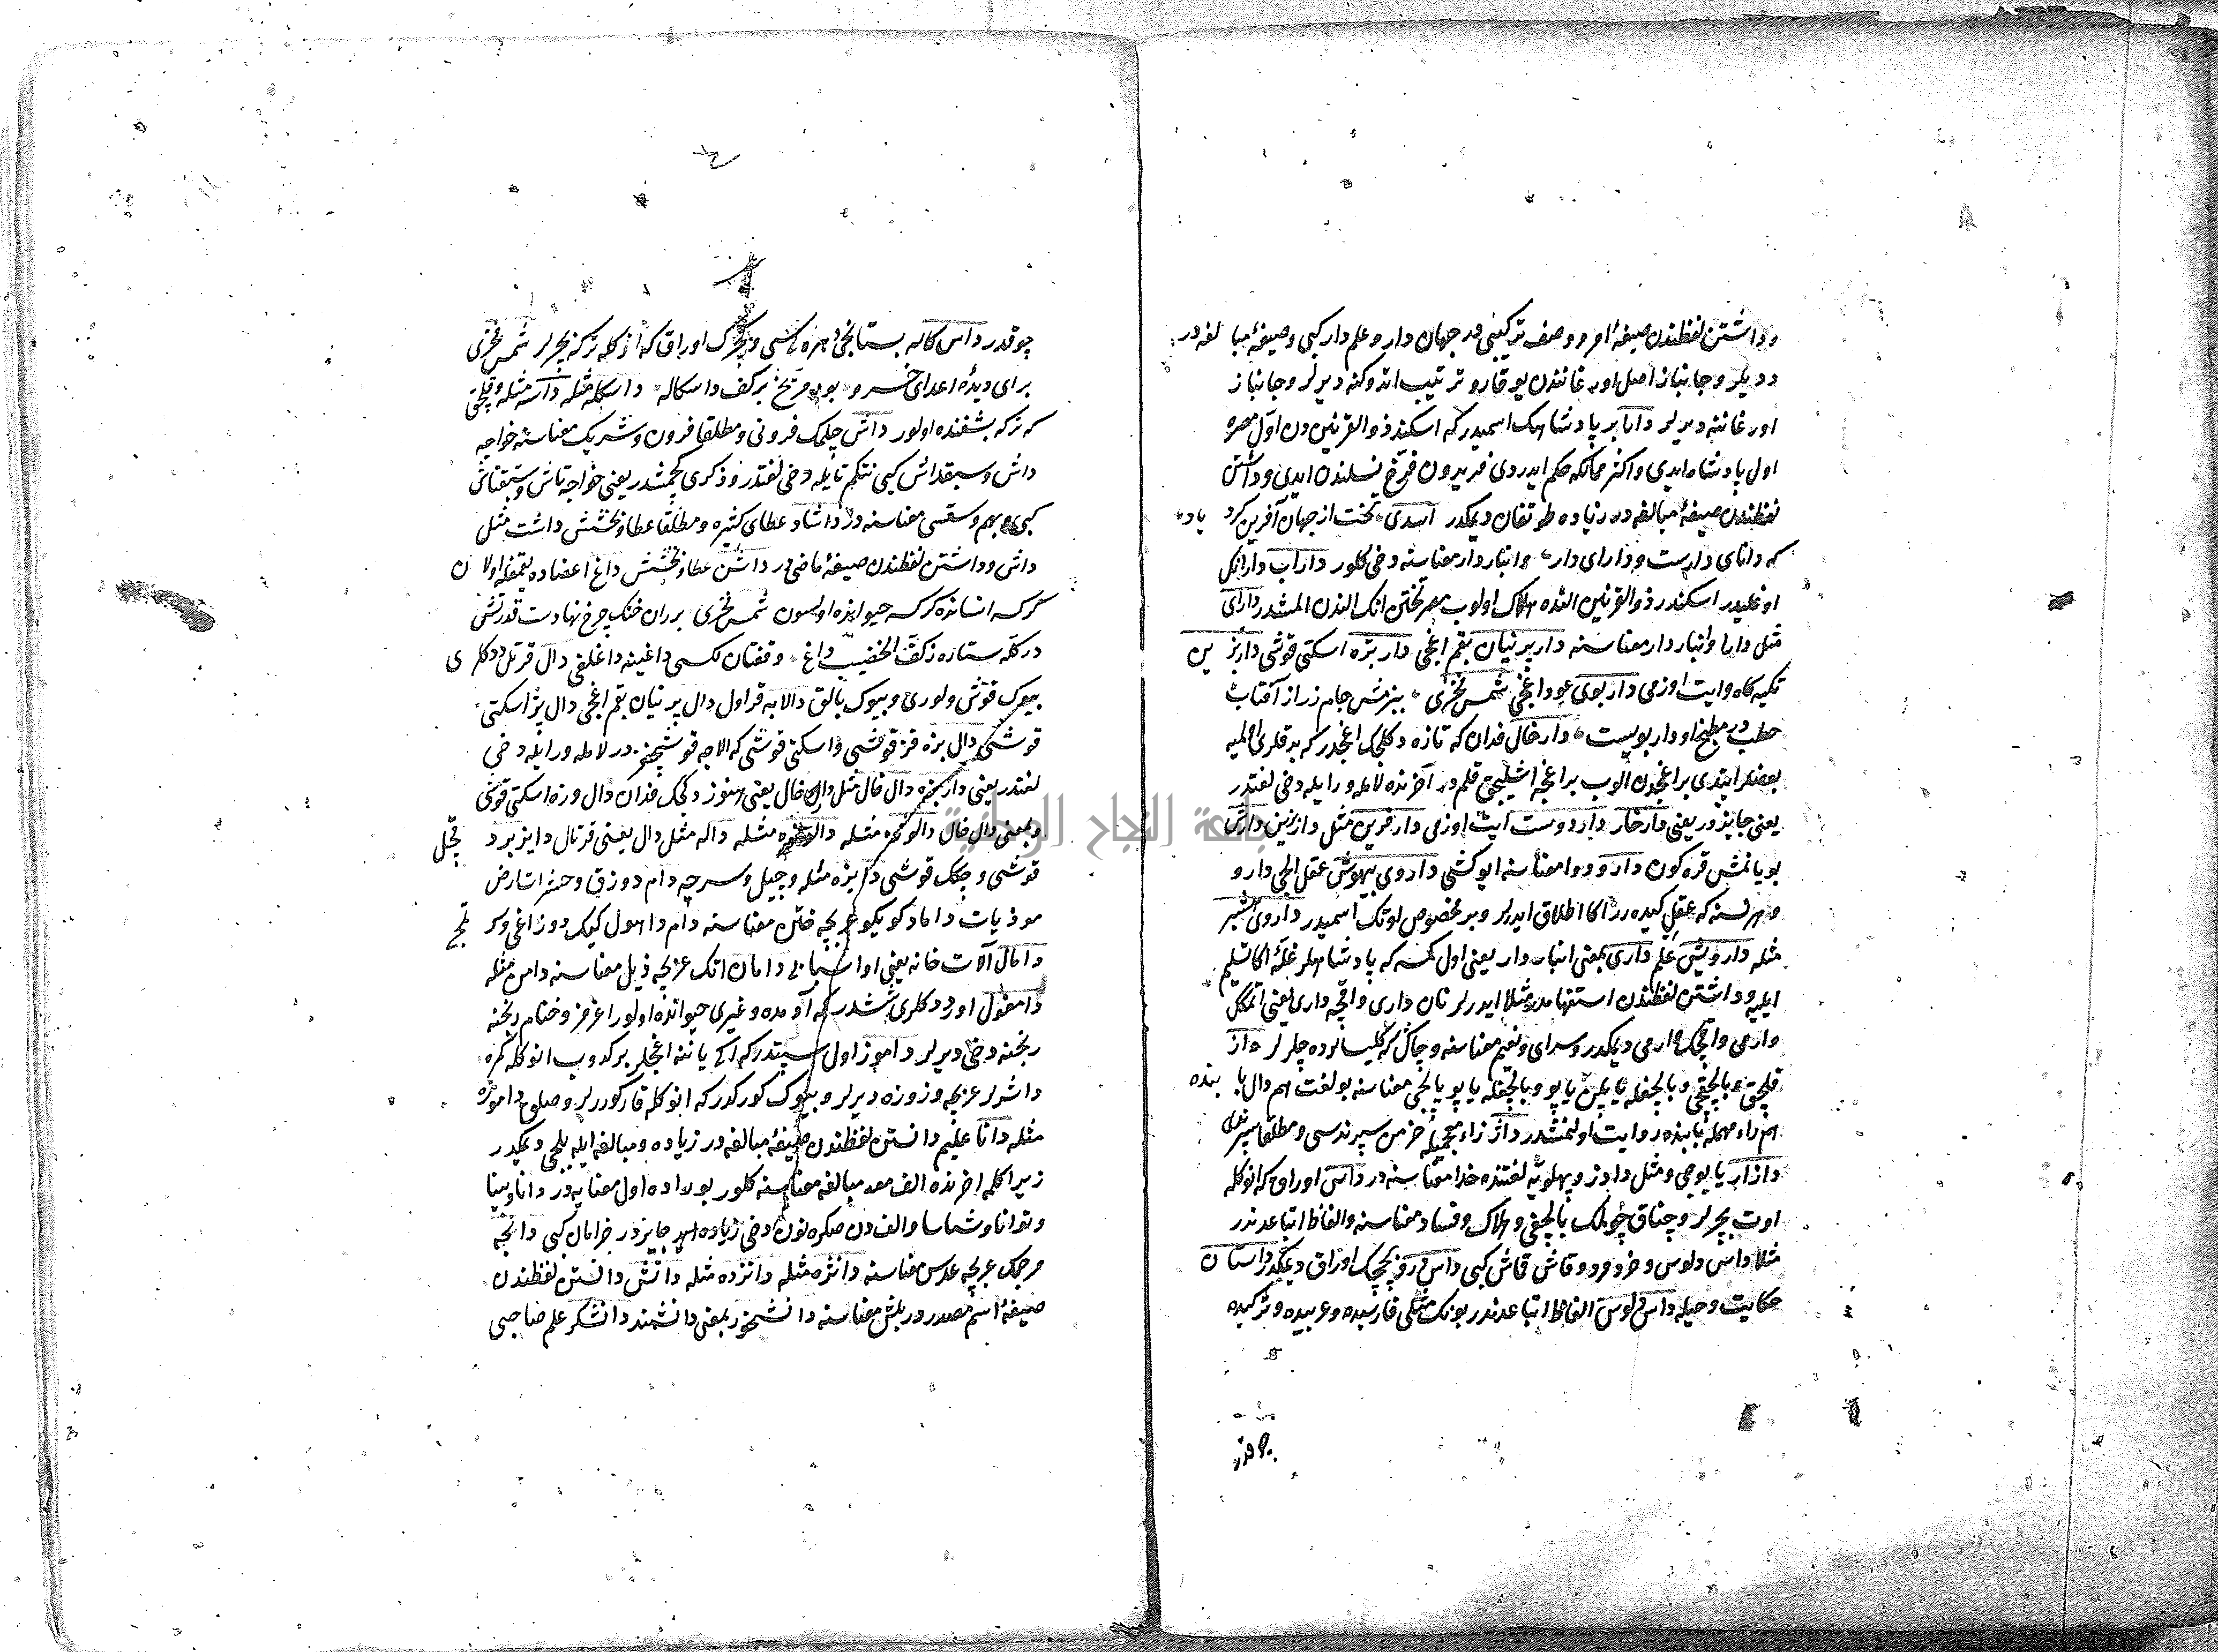 وداشتن لفظندن صیغۀ امر و وصف ترکیبی در جهان دار و علم دار کبی و صیغۀ مبالغه در
دیلر و جانباز اصل اورغانندن یوقارو ترتیب اتدوکنه دیرلر و جانباز
اورغاننه دیرلر دارا بر پادشاهک اسمیدر که اسکندر ذوالقرنین دن اول مصره
اول پادشاه ایدی و اکثر ممالکه حکم ایدردی فریدون فرخ نسلندن ایدی و داشتن
لفظندن صیغۀ مبالغه در زیاده طوتغان دیمکدر اسدی نخست از جهان آفرین کرد یاد
که دانای دارست و دارای دار و انباردار معناسنه دخی کلور داراب دارانک
اوغلیدر اسکندر ذوالقرنین النده هلاک اولوب مصر تختن انک الندن المشدر دارای
مثل دارا و انباردار معناسنه دار پرنیان بقم اغجی دار بزه اسکتی قوشی داربزین
تکیه کاه و ایت اوزمی داربوی عود اغجی شمس فخری بنرمش جام زر از آفتاب
حطب در مطبخ او داربویست دارخال فدان که تازه دکلمک اغجدر که یرقلری اولمیه
بعضلر ایتدی بر اغجدن الوب بر اغجه اشلیجق قلم در آخرنده لامله و رایله دخی لغتدر
یعنی جایزدر یعنی دارخار داردوست ایت اوزمی دارفرین مثل داربزین دارش
بویانمش قره کون دارو دوا معناسنه ایو کشی داروی بیهوش عقل الجی دارو
و هر نسنه که عقل کیده ررا کا اطلاق ایدرلر و بر مخصوص اوتک اسمیدر داروی
مثله درویش علم داری بمعنی انباردار یعنی اول کمسه که پادشاهلر غله اکا تسلیم
ایلیه و داشتن لفظندن استفهامدر مثلا ایدرلر نان داری و اقچه داری یعنی اتمکک
وارمی و اقچک وارمی دیمکدر و سرای و نغیم معناسنه و چاک که کلیسالرده چلرلر داز
قلچق و بالچقی و بالچغله یاپلمن یاپو و بالچغله یاپو یاپجی معناسنه بو لغت هم دال با بنده
هم راء مهمله بابنده روایت اولنمشدر داژ زاء عجمیله خرمن سپرندسی و مطلقا سپرندی
دازار یاپوجی و مثل دادز و پهلویه لغتنده خدا معناسنه در داس اوراق که انوکله
اوت بچرلر و چناق چوملک بالچقی و هلاک و فساد معناسنه و الفاظ اتباعدندر
مثلا داس دلوس و خرد مرد و قاش قماش کبی داس درو بچجک اوراق دیمکدر داستان
حکایت و حیله داس و لوس الفاظ اتباعدندر بونک مثلی فارسیده و عربیده و ترکیده
چوقدر داس کاله بستانجی دهره سی و بچرک اوراق که انکله ترکه بچرلر شمس فخری
برای دیدۀ اعدای خسرو بود مریخ بر کف داسکاله داسکله مثله داسه مثله و قلچق
که ترکه بشنده اولور داش چلمک فرونی و مطلقا فرون و شریک معناسنه خواجه
داش و سبقداش کبی نتکم تایله دخی لغتدر و ذکری کچمشدر یعنی خواجه تاش و سبقتاش
کبی و بهم و سقسی معناسنه در داشاد عطای کثیره و مطلقا عطا و بخشش داشت مثل
داش و داشتن لفظندن صیغۀ ماضی در داشن عطا و بخشش داغ اعضاده یقمغله اولان
کرکسه انسانده کرکسه حیوانده اولسون شمس فخری بر ران خنک چرخ نهادست قدرتش
در کله ستاره زکف الخضیب داغ و قفتان یکسی داغینه داغلغی دال قرتل ددکلری
بیوک قوش ولوری و بیوک بالق دالابه قراول دال پرنیان بقم اغجی دال بژ اسکتی
قوشی دال بزه قز قوشی و اسکتی قوشی که الاجه قوشچغزدر لامله و رایله دخی
لغتدر یعنی داربزه دال خال مثل دارخال یعنی هنوز دکلجک فدان دال وزه اسکتی قوشی
و بمعنی دال خال دالوزه مثله دالوژه مثله داله مثل دال یعنی قرتال دایزبرد قجل
قوشی و جک قوشی دایزه مثله و جبیل و سرچه دام دوزق و حشرات ارض
موذیات داماد کویکو عربچه ختن معناسنه دام داهول کیک دوزاغی و کر تلج
دامال آلات خانه یعنی او اسبابی دامان اتک عربچه ذیل معناسنه دامن مثله
دامغول اورد دکلری ششدر که آدمده و غیری حیوانده اولور اغرغز و ختام رخنه
رخنه دخی دیرلر داموز اول سپتدر که ایکی یاننه اغجلر برکدوب انوکله کمره
داشرلر عربچه وزوزه دیرلر و بیوک کورکدر که انوکله قار کوررلر و صلوغ داموزه
مثله دانا علیم دانستن لفظندن صیغۀ مبالغه در زیاده و مبالغه ایله بلجی دیمکدر
زیرا کلمه اخرنده الف مده مبالغه معناسنه کلور بوراده اول معنایه در دانا و بینا
و توانا و شناسا و الف دن صکره نون دخی زیاده اتمک جایزدر خرامان کبی دانجه
مرجمک عربچه عدس معناسنه دانژه مثله دانزده مثله دانش دانستن لفظندن
صیغۀ اسم مصدر در بلش معناسنه دانشخور بمعنی دانشمند دانشکر علم صاحبی
جامعة النجاح الوطنية